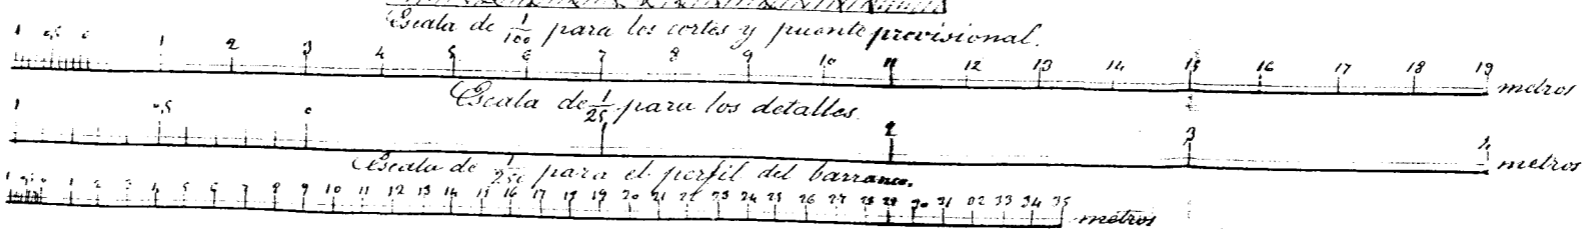 Escala de 1/100 para los cortes y puente provisional.
1 0,5 0 1 2 3 4 5 6 7 8 9 10 11 12 13 14 15 16 17 18 19 metros
Escala de 1/25 para los detalles.
1 0,5 0 2 3 4 metros
Escala de 1/250 para el perfil del barranco.
1 0 1 2 3 4 5 6 7 8 9 10 11 12 13 14 15 16 17 18 19 20 21 22 23 24 25 26 27 28 29 30 31 32 33 34 35 metros